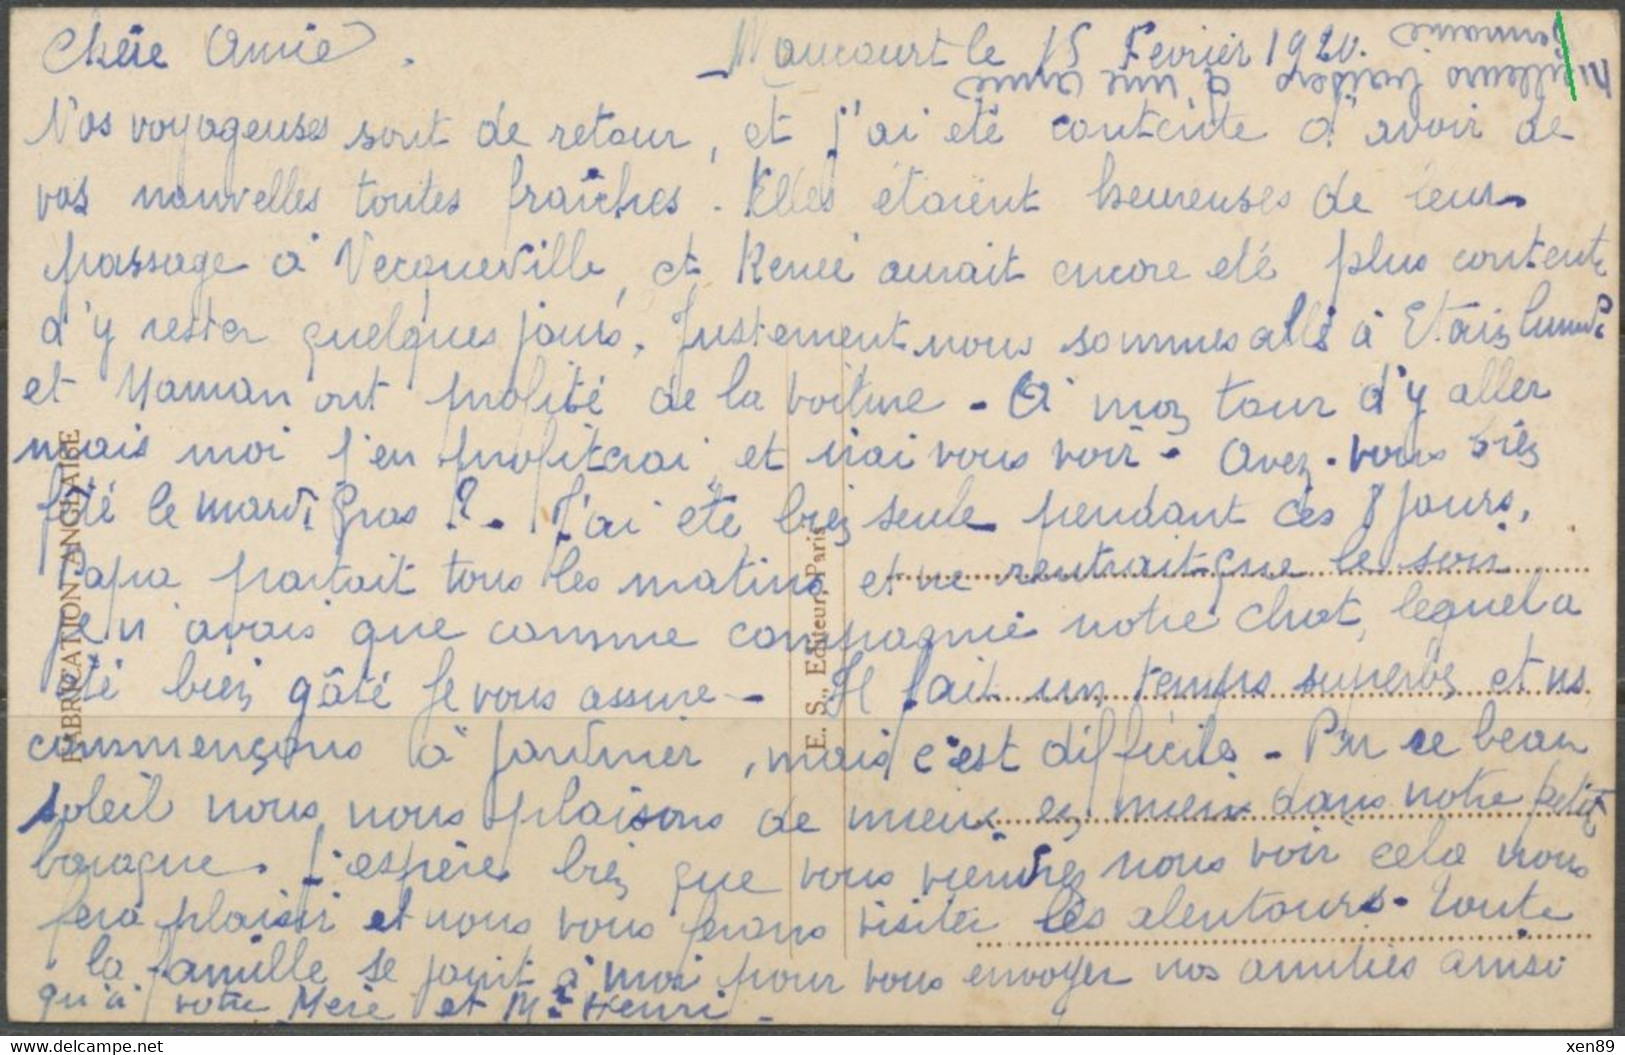 Chère Amie.
Maucourt le 15 Fevrier 1920.
Nos voyageuses sont de retour, et j'ai eté contente d'avoir de
vos nouvelles toutes fraîches. Elles étaient heureuses de leur
passage à Vecqueville, et Renée aurait encore eté plus contente
d'y rester quelques jours. Justement nous sommes allés à Etain lundi
et Maman ont profité de la voiture - A mon tour d'y aller
mais moi j'en profiterai et irai vous voir - Avez-vous bien
fêté le mardi Gras ? - J'ai été bien seule pendant ces 8 jours.
Papa partait tous les matins et ne rentrait que le soir
je n'avais que comme compagnie notre chat, lequel a
été bien gâté je vous assure - Il fait un temps superbe et ns
commençons à jardiner, mais c'est difficile - Par ce beau
soleil nous nous plaisons de mieux en mieux dans notre petite
baraque. J'espère bien que vous viendrez nous voir cela nous
fera plaisir et nous vous ferons visiter les alentours - Toute
la famille se joint à moi pour vous envoyer nos amitiés ainsi
qu'à votre Mère et Mr Henri -
meilleurs baisers d'une amie
Germaine
FABRICATION ANGLAISE
E. S., Editeur, Paris
xen89
delcampe.net